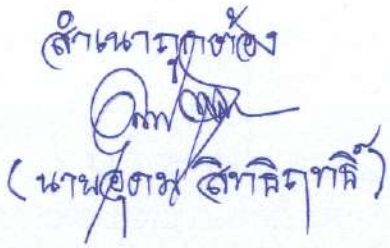 สำเนาถูกต้อง
(นายอุดม สิทธิฤทธิ์)